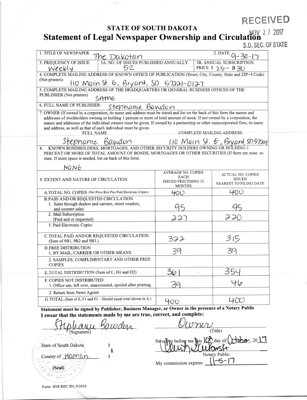 RECEIVED
NOV 27 2017
S.D. SEC. OF STATE
STATE OF SOUTH DAKOTA
Statement of Legal Newspaper Ownership and Circulation
1. TITLE OF NEWSPAPER The Dakotan
2. DATE 9-30-17
3. FREQUENCY OF ISSUE Weekly
3A. NO. OF ISSUES PUBLISHED ANNUALLY 52
3B. ANNUAL SUBSCRIPTION PRICE $
4. COMPLETE MAILING ADDRESS OF KNOWN OFFICE OF PUBLICATION (Street, City, County, State and ZIP+4 Code) (Not Printers)
110 Main St E, Bryant, SD 57221-0127
5. COMPLETE MAILING ADDRESS OF THE HEADQUARTERS OR GENERAL BUSINESS OFFICES OF THE
PUBLISHER (Not printers)
SAME
6. FULL NAME OF PUBLISHER: Stephanie Bawdon
7. OWNER (If owned by a corporation, its name and address must be stated and list on the back of this form the names and
addresses of stockholders owning or holding 1 percent or more of total amount of stock. If not owned by a corporation, the
names and addresses of the individual owners must be given. If owned by a partnership or other unincorporated firm, its name
and address, as well as that of each individual must be given.
FULL NAME
COMPLETE MAILING ADDRESS
Stephanie Bawdon 110 Main St E, Bryant, SD 57221
8. KNOWN BONDHOLDERS, MORTGAGEES, AND OTHER SECURITY HOLDERS OWNING OR HOLDING 1
PERCENT OR MORE OF TOTAL AMOUNT OF BONDS, MORTGAGES OR OTHER SECURITIES (If there are none, so
state. If more space is needed, list on back of this form.
NONE
9. EXTENT AND NATURE OF CIRCULATION
AVERAGE NO. COPIES EACH ISSUED PRECEDING 12 MONTHS
ACTUAL NO. COPIES ISSUED NEAREST TO FILING DATE
A. TOTAL NO. COPIES (Net Press Run Plus Paid Electronic Copies) 400 400
B. PAID AND/OR REQUESTED CIRCULATION
1. Sales through dealers and carriers, street vendors, and counter sales. 95 95
2. Mail Subscription (Paid and or requested) 227 220
3. Paid Electronic Copies
C. TOTAL PAID AND/OR REQUESTED CIRCULATION (Sum of 9B1, 9B2 and 9B3.) 322 315
D. FREE DISTRIBUTION
1. BY MAIL, CARRIER OR OTHER MEANS 39 39
2. SAMPLES, COMPLIMENTARY AND OTHER FREE COPIES
E. TOTAL DISTRIBUTION (Sum of C, D1 and D2) 361 354
F. COPIES NOT DISTRIBUTED
1. Office use, left over, unaccounted, spoiled after printing 39 46
2. Return from News Agents
G. TOTAL (Sum of E, F1 and F2 - Should equal total shown in A.) 400 400
Statement must be signed by Publisher, Business Manager, or Owner in the presence of a Notary Public
I swear that the statements made by me are true, correct, and complete:
Stephanie Bawdon Owner
(Signature) (Title)
State of South Dakota )
County of Hamlin )
(Seal)
day of October, 2017
Notary Public
My commission expires: 11-5-17
Form: SOS REC 051 9/2016